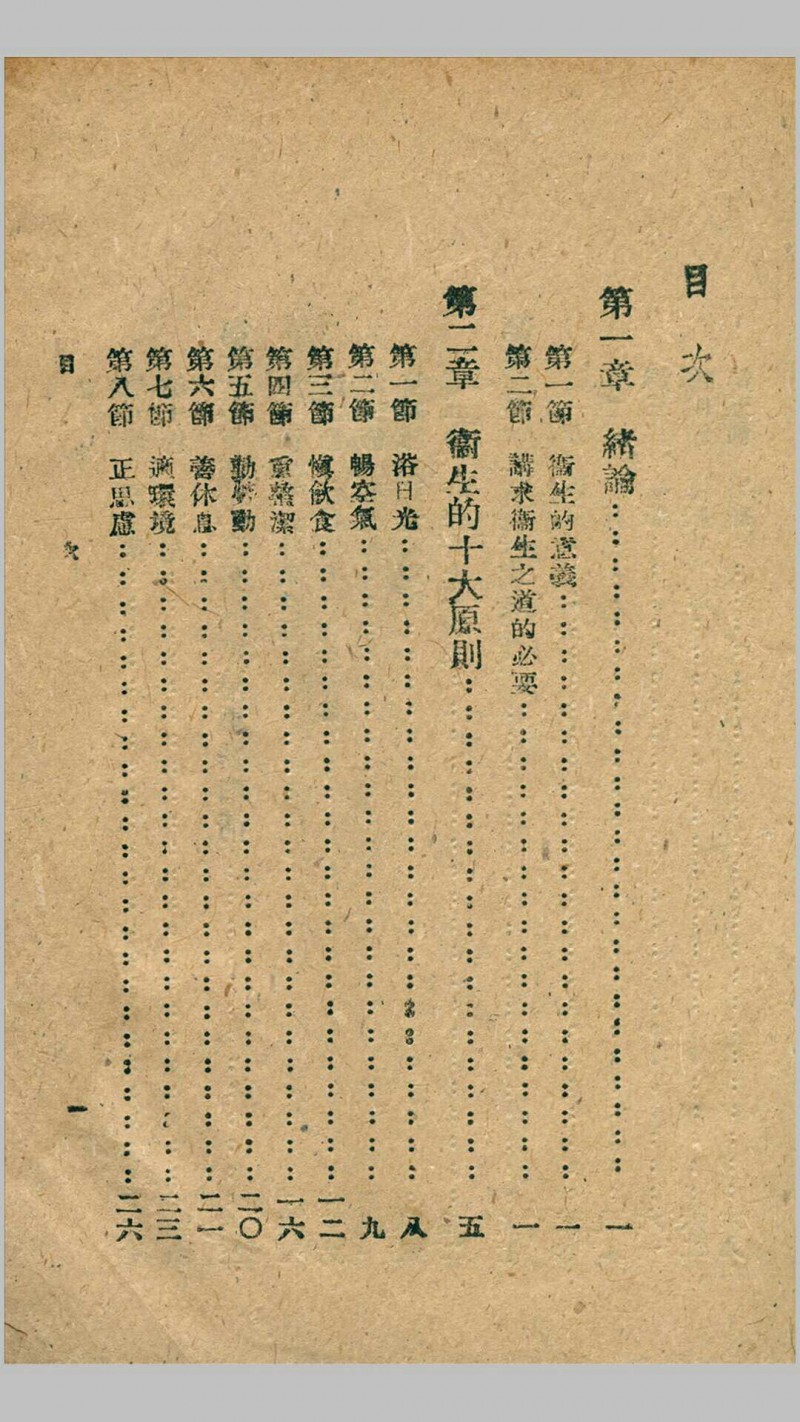 目次
第一章　緒論……一
第一節　衞生的意義……一
第二節　講求衞生之道的必要……一
第二章　衞生的十大原則……五
第一節　浴日光……八
第二節　暢空氣……九
第三節　愼飲食……一二
第四節　重整潔……一六
第五節　勤勞動……二〇
第六節　善休息……二一
第七節　適環境……二三
第八節　正思慮……二六
目次　一